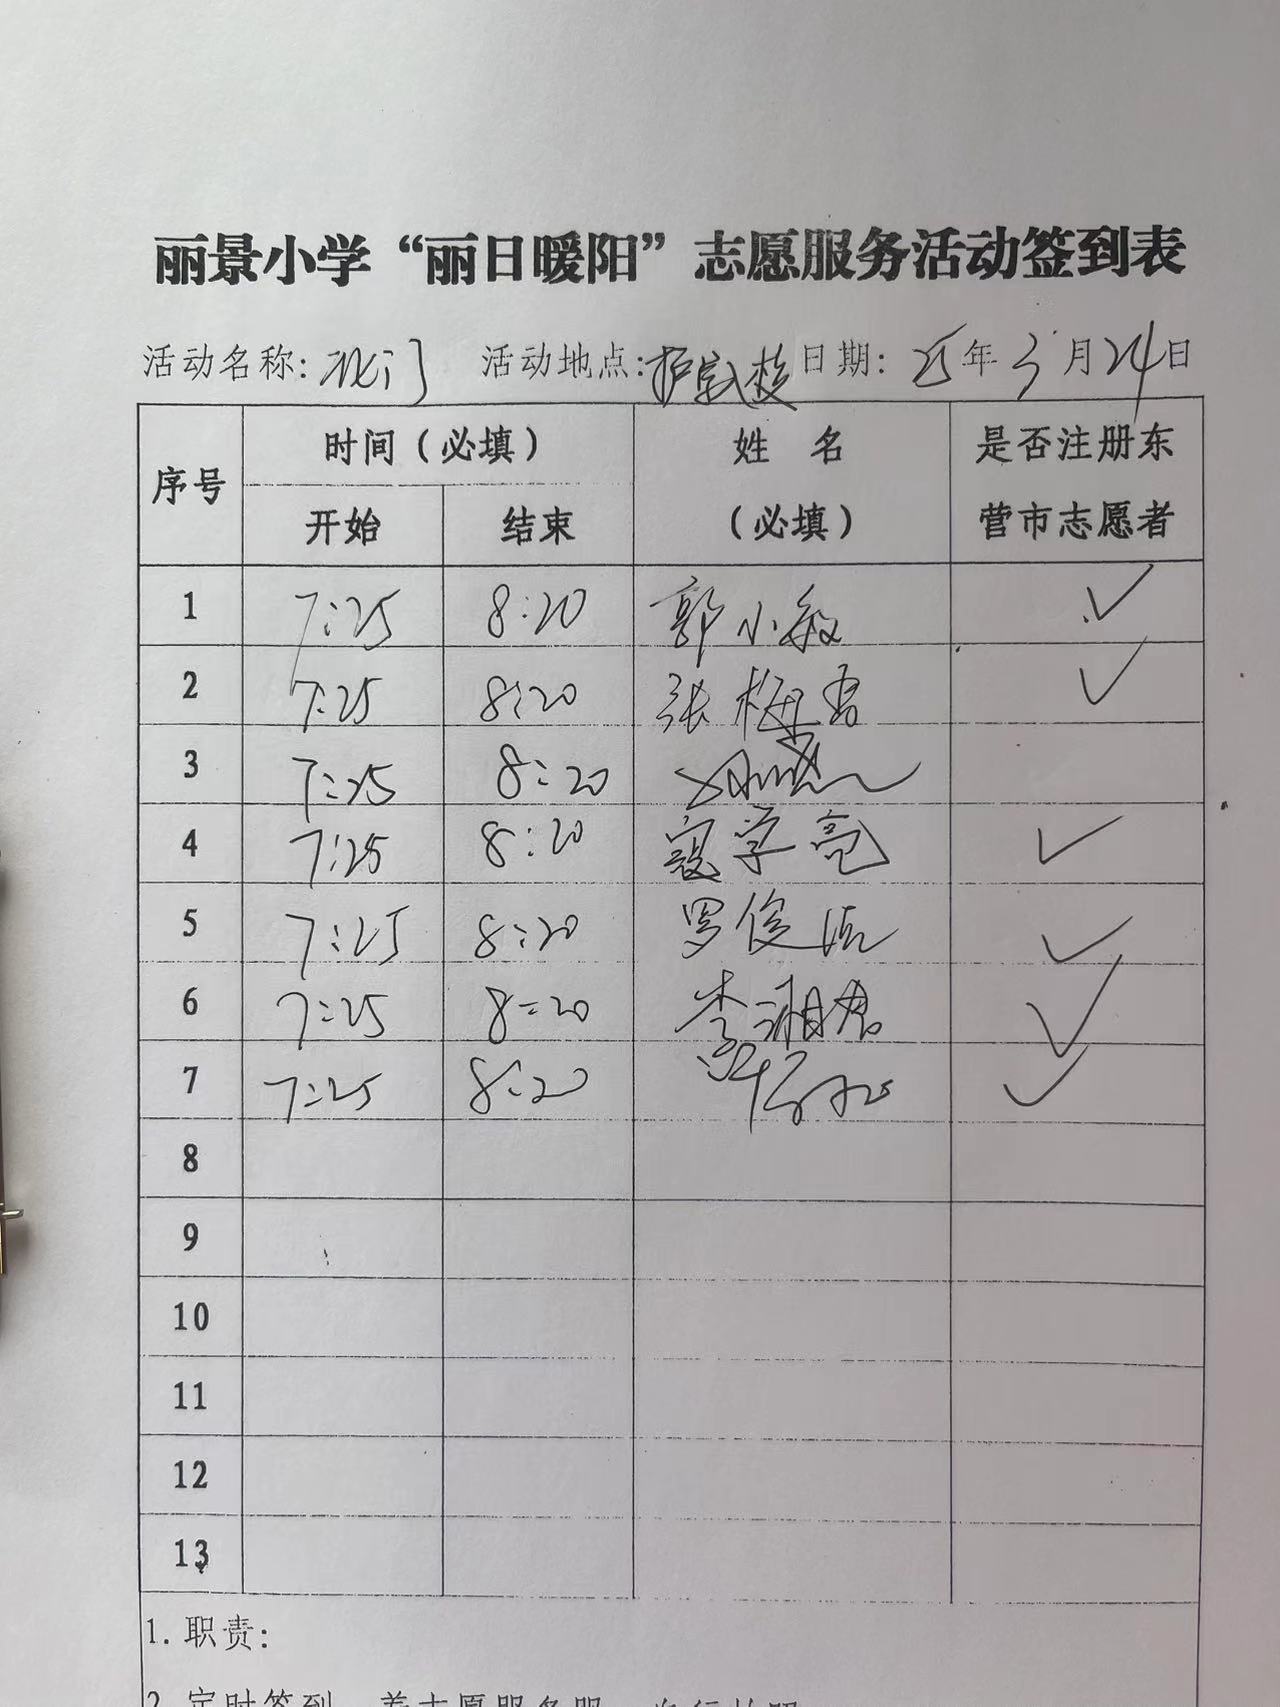 丽景小学“丽日暖阳”志愿服务活动签到表
活动名称: 北门 活动地点: 护学 日期: 25年3月24日
序号 时间(必填) 姓 名 是否注册东
开始 结束 (必填) 营市志愿者
1 7:25 8:20 郭小敏 ✓
2 7:25 8:20 张梅香 ✓
3 7:25 8:20
4 7:25 8:20 寇学亮 ✓
5 7:25 8:20 罗俊洁 ✓
6 7:25 8:20 李湘君 ✓
7 7:25 8:20 ✓
8
9
10
11
12
13
1. 职责:
2. 定时签到